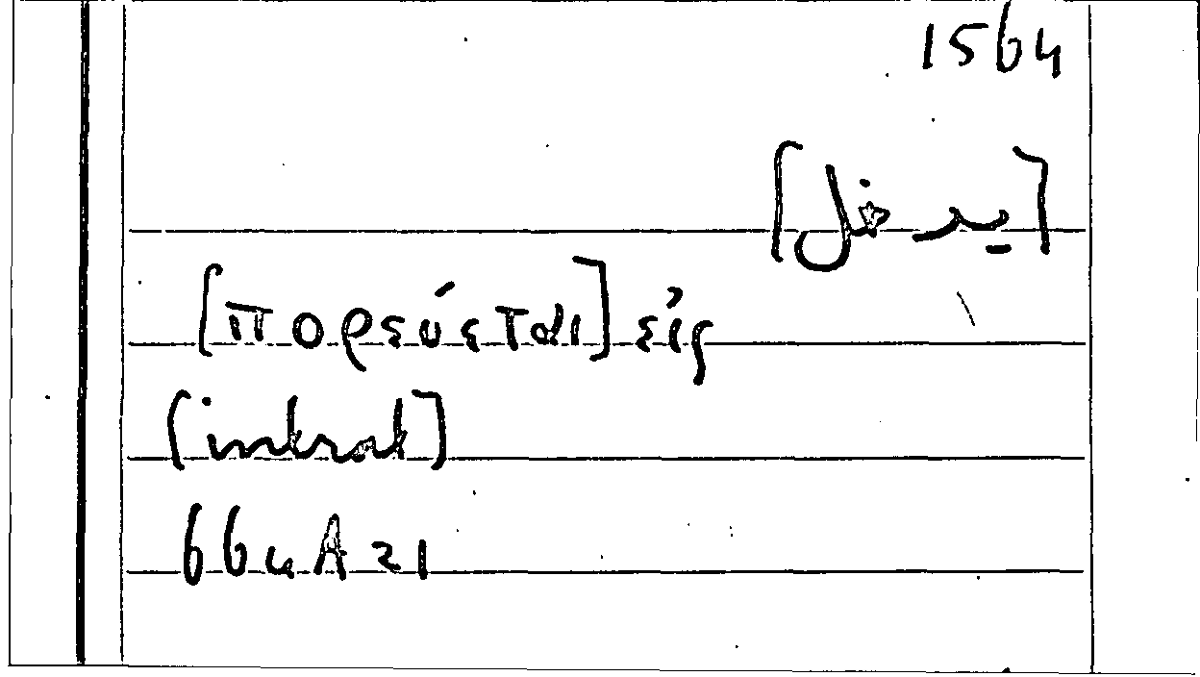 1564
[يدخل]
[πορεύεται] εἰς
[intrat]
664A21